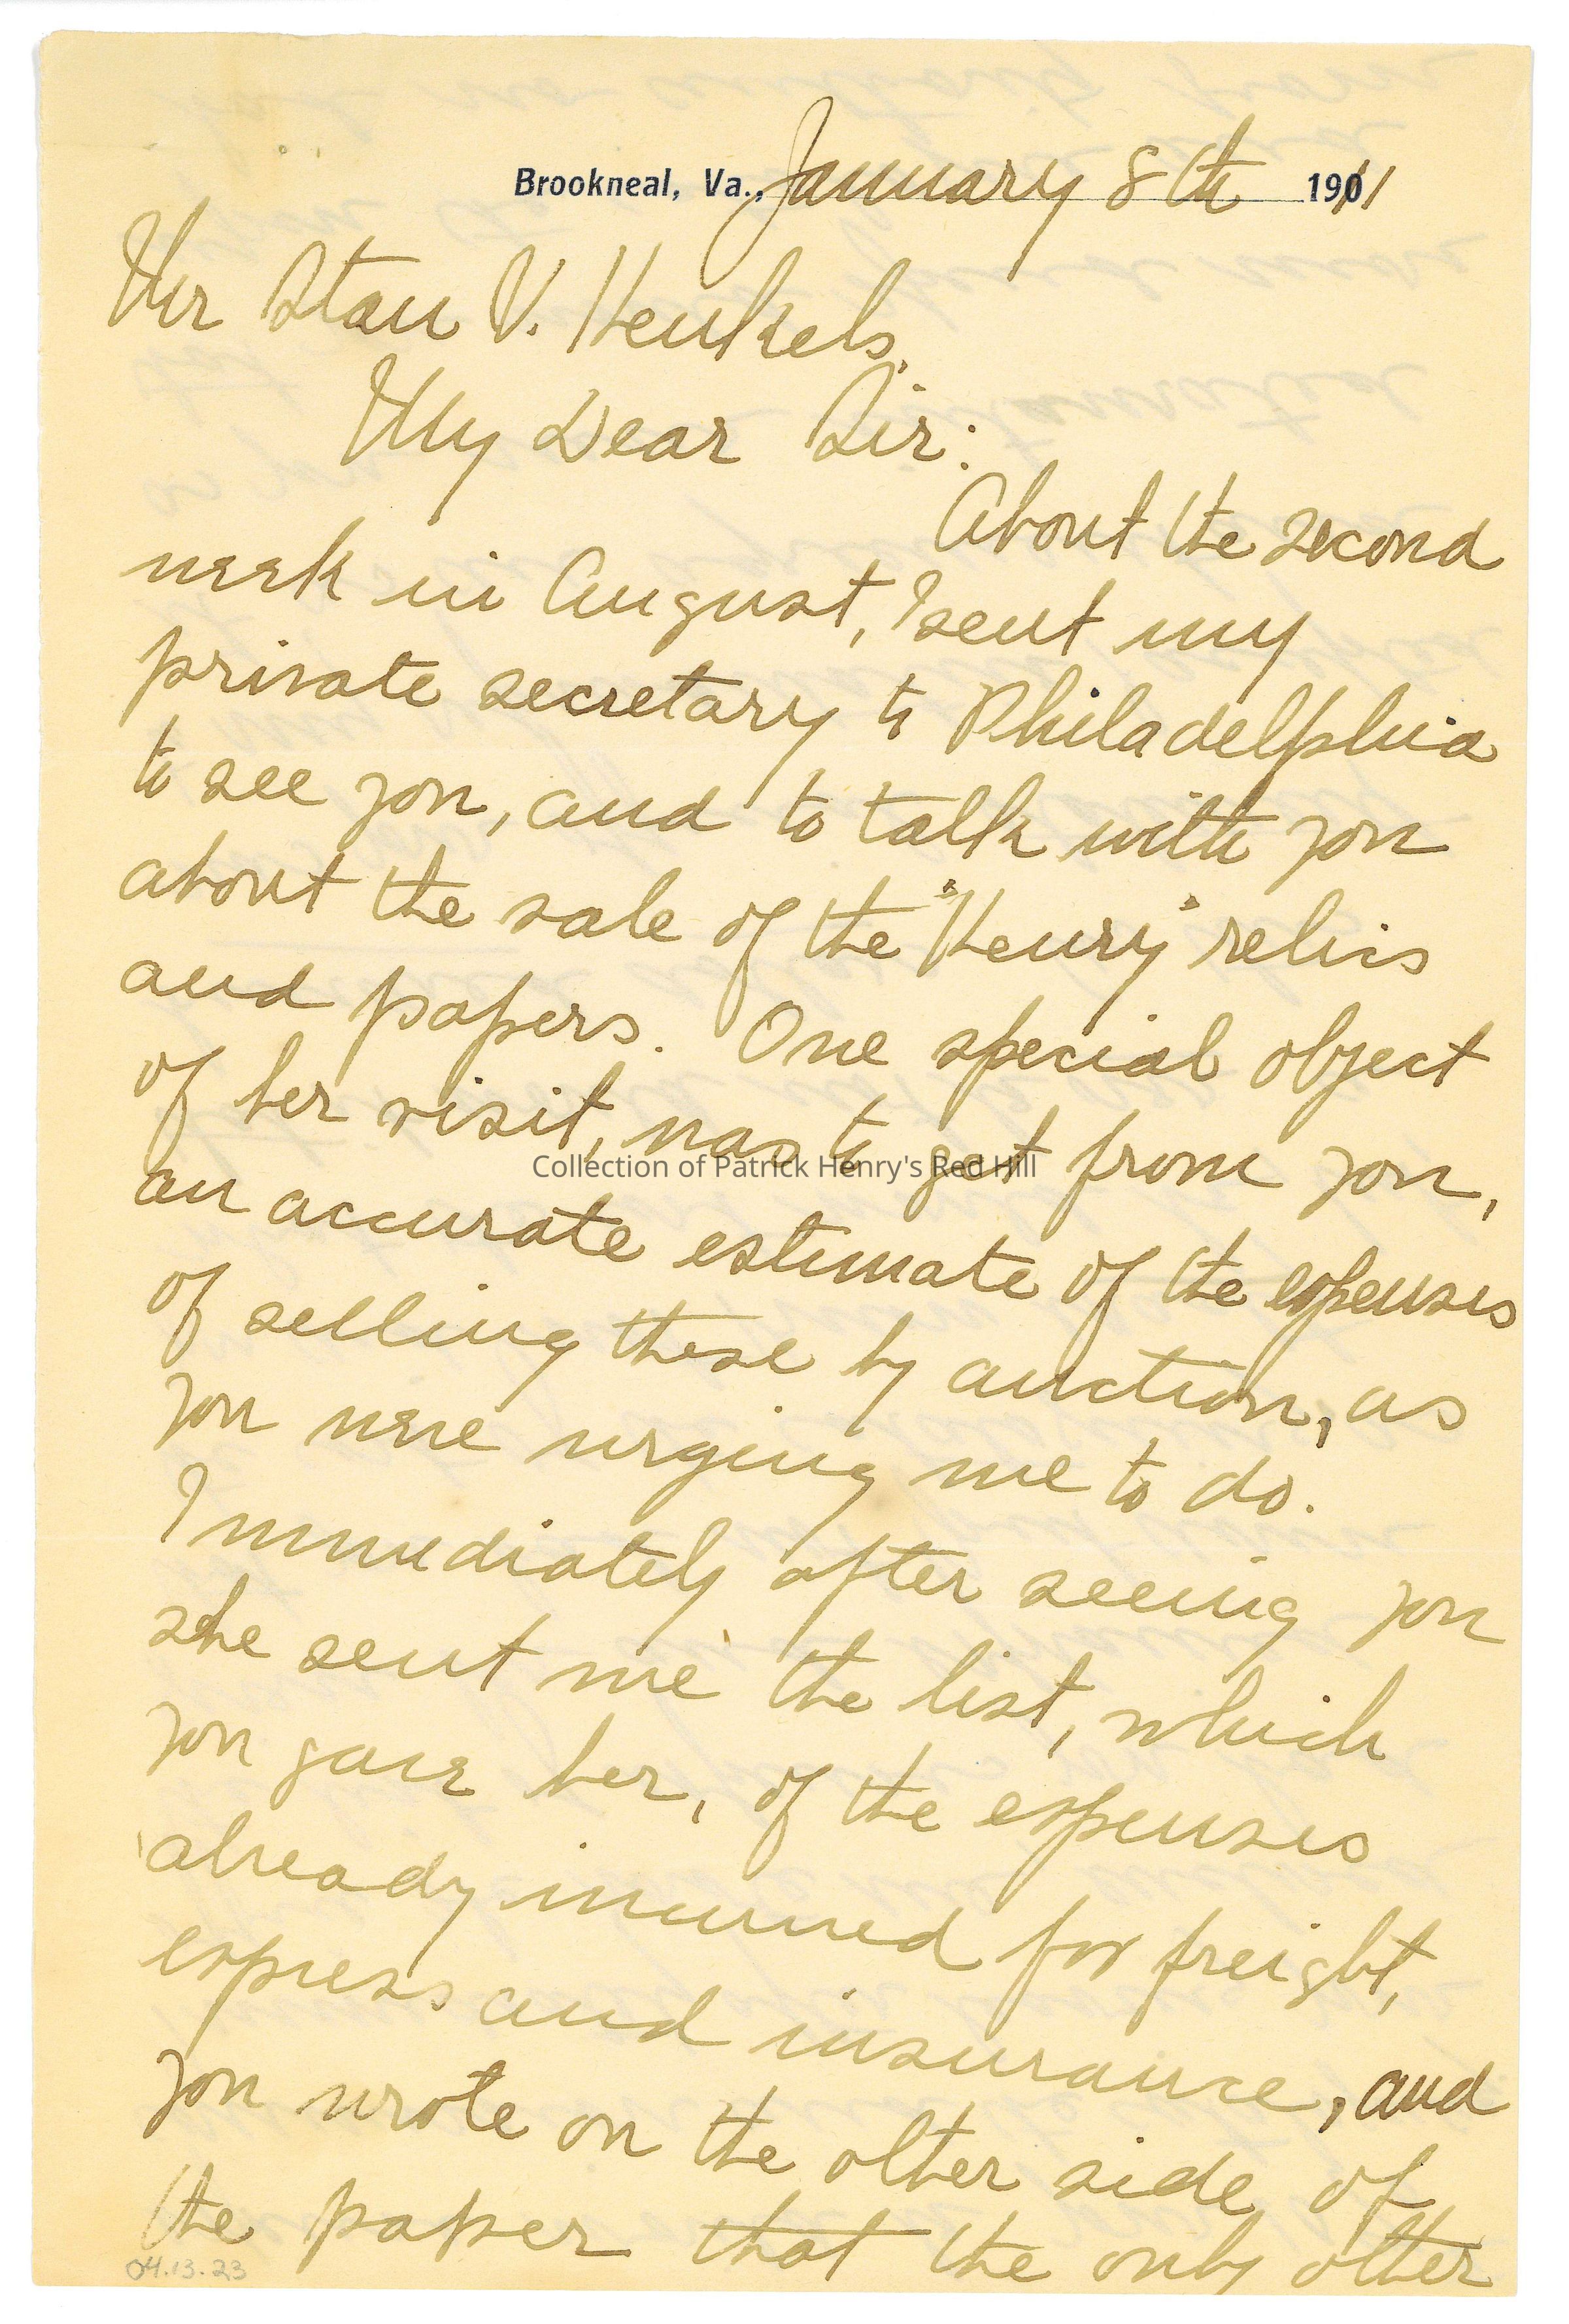 Brookneal, Va., January 8th 1911
Mr Stan V. Henkels,
My Dear Sir:
About the second
week in August, I sent my
private secretary to Philadelphia
to see you, and to talk with you
about the sale of the "Henry" relics
and papers. One special object
of her visit, was to get from you,
Collection of Patrick Henry's Red Hill
an accurate estimate of the expenses
of selling these by auction, as
you were urging me to do.
Immediately after seeing you
she sent me the list, which
you gave her, of the expenses
already incurred for freight,
express and insurance, and
you wrote on the other side of
the paper that the only other
04.13.23